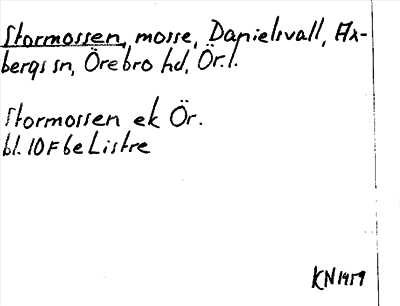 Stormossen, mosse, Danielsvall, Ax-
bergs sn, Örebro hd, Ör. l.
Stormossen ek Ör.
bl. 10F be Listre
KN 1959